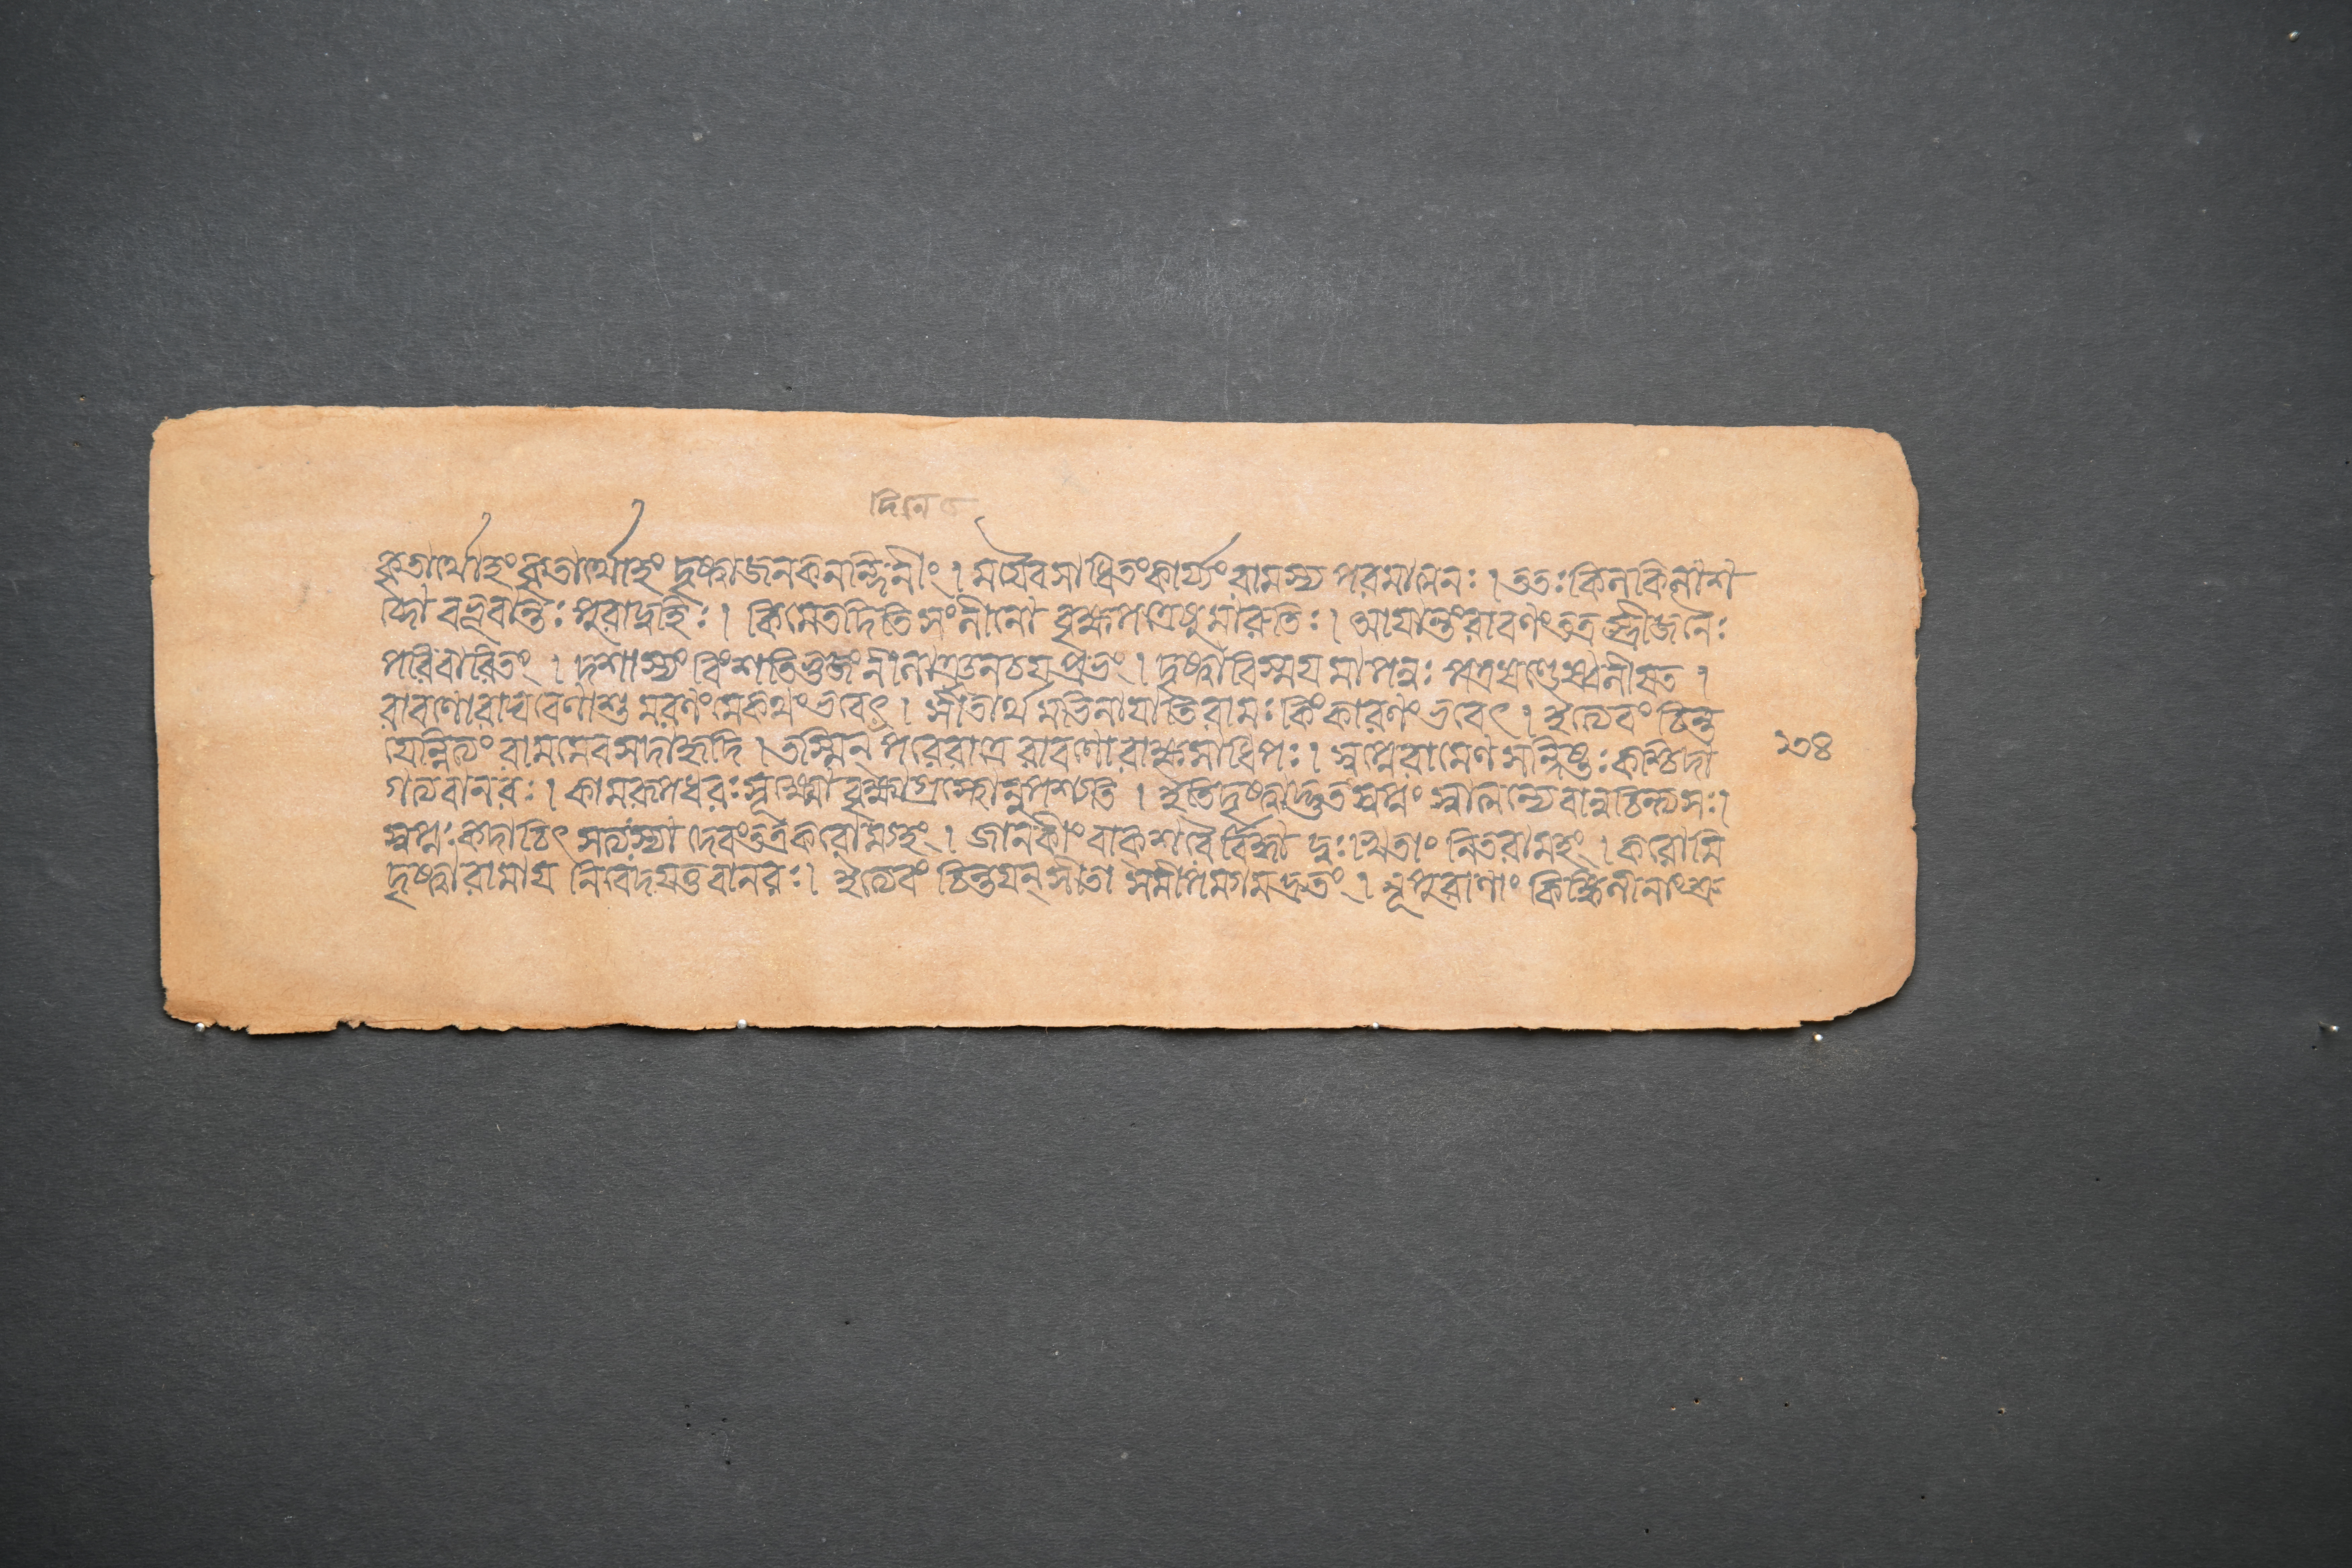 দিনে
কৃতার্থোহং কৃতার্থোহং দৃষ্ট্বা জনকনন্দিনীং । ময়ৈব সাধিতং কার্য্যং রামস্য পরমাত্মনঃ । ততঃ কিলকিলাশ
ব্দো বভূবান্তঃ পুরাদ্বহিঃ । কিমেতদিতি সংলীনো বৃক্ষপত্রেষু মারুতিঃ । আয়ান্তং রাবণং তত্র স্ত্রীজনৈঃ
পরিবারিতং । দশাস্যং বিংশতিভুজং নীলাঞ্জনচয়প্রভং । দৃষ্ট্বা বিস্ময়মাপন্নঃ পত্রখণ্ডেষ্বলীয়ত ।
রাবণো রাঘবেণাশু মরণং মে কথং ভবেৎ । সীতার্থমপি নায়াতি রামঃ কিং কারণং ভবেৎ । ইত্যেবং চিন্ত
য়ন্নিত্যং রামমেব সদা হৃদি । তস্মিন্ পররাত্রে রাবণো রাক্ষসাধিপঃ । স্বপ্নে রামেণ সন্দিষ্টঃ কশ্চিদা
গত্য বানরঃ । কামরূপধরঃ সূক্ষ্মো বৃক্ষাগ্রস্থোনুপশ্যতি । ইতি দৃষ্ট্বাদ্ভুতং স্বপ্নং স্বাত্মন্যেবানুচিন্ত্য সঃ ।
স্বপ্নঃ কদাচিৎ সত্যঃ স্যাদেবং তত্র করোম্যহং । জানকীং বাক্শরৈর্বিদ্ধ্বা দুঃখিতাং নিতরামহং । করোমি
দৃষ্ট্বা রামায় নিবেদয়তু বানরঃ । ইত্যেবং চিন্তয়ন্ সীতা সমীপমগমদ্দ্রুতং । নূপুরাণাং কিঙ্কিনীনাং শ্রু
১৩৪